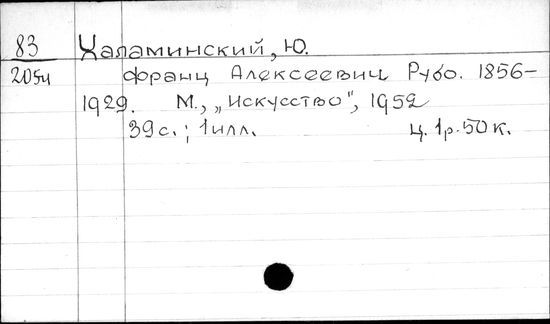 83 Халаминский, Ю.
2054 Франц Алексеевич Рубо. 1856-
1929. М., „Искусство", 1952
39с.; 1илл. Ц. 1р. 50к.